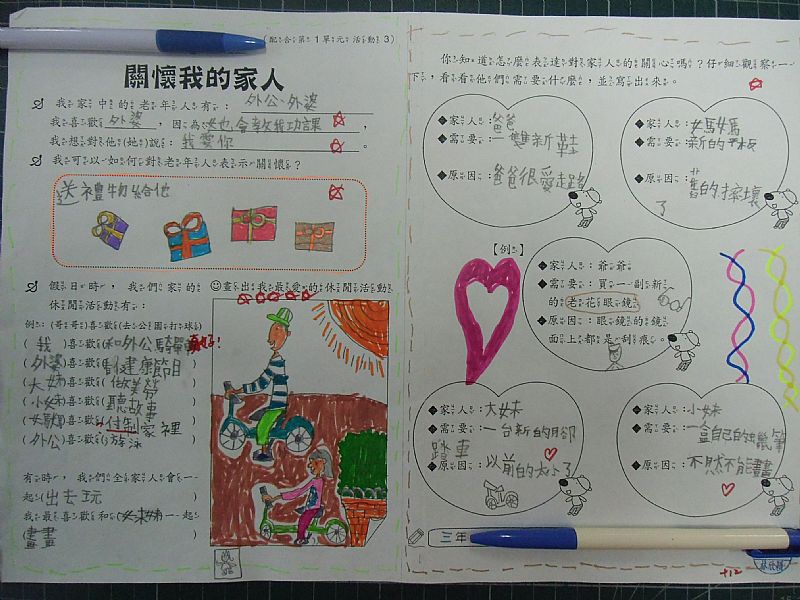 (配合第1單元活動3)
關懷我的家人
我家中的老年人有：外公、外婆
我喜歡外婆，因為她也會教我功課，
我想對他(她)說：我愛你。
我可以如何對老年人表示關懷？
送禮物給他
假日時，我們家的休閒活動有：
☺畫出我最愛的休閒活動
例：(哥哥)喜歡(去公園打球)
(我)喜歡(和外公騎單車)
真好！
(外婆)喜歡(健康節目)
(大妹)喜歡(做美勞)
(小妹)喜歡(聽故事)
(媽媽)喜歡(家裡)
(外公)喜歡(游泳)
有時，我們全家人會一起(出去玩)
我最喜歡和(妹妹)一起(畫畫)
你知道怎麼表達對家人的關心嗎？仔細觀察一
下，看看他們需要什麼，並寫出來。
家人：爸爸
需要：一雙新鞋
原因：爸爸很愛走路
家人：媽媽
需要：新的平板
原因：舊的摔壞了
【例】
家人：爺爺
需要：買一副新的老花眼鏡
原因：眼鏡的鏡面上都是刮痕。
家人：大妹
需要：一台新的腳踏車
原因：以前的太小了
家人：小妹
需要：一盒自己的蠟筆
原因：不然不能畫畫
三年
+12